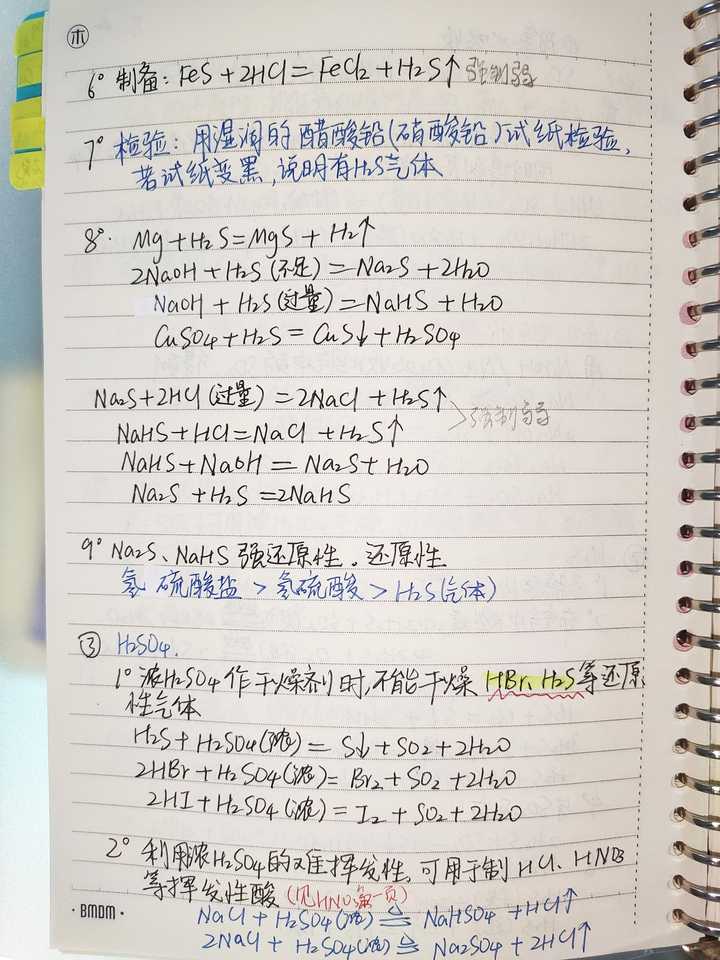 ㊍
6° 制备：FeS + 2HCl = FeCl2 + H2S↑ 强制弱
7° 检验：用湿润的醋酸铅(硝酸铅)试纸检验，
若试纸变黑，说明有H2S气体
8°. Mg + H2S = MgS + H2↑
2NaOH + H2S (不足) = Na2S + 2H2O
NaOH + H2S (过量) = NaHS + H2O
CuSO4 + H2S = CuS↓ + H2SO4
Na2S + 2HCl (过量) = 2NaCl + H2S↑
NaHS + HCl = NaCl + H2S↑ >强制弱
NaHS + NaOH = Na2S + H2O
Na2S + H2S = 2NaHS
9° Na2S、NaHS 强还原性。还原性
氢硫酸盐 > 氢硫酸 > H2S(气体)
③ H2SO4.
1° 浓H2SO4作干燥剂时，不能干燥 HBr、H2S等还原
性气体
H2S + H2SO4(浓) = S↓ + SO2 + 2H2O
2HBr + H2SO4(浓) = Br2 + SO2 + 2H2O
2HI + H2SO4(浓) = I2 + SO2 + 2H2O
2° 利用浓H2SO4的难挥发性，可用于制 HCl、HNO3
等挥发性酸 (见HNO3第一页)
NaCl + H2SO4(浓) ≜ NaHSO4 + HCl↑
2NaCl + H2SO4(浓) ≜ Na2SO4 + 2HCl↑
· BMDM ·